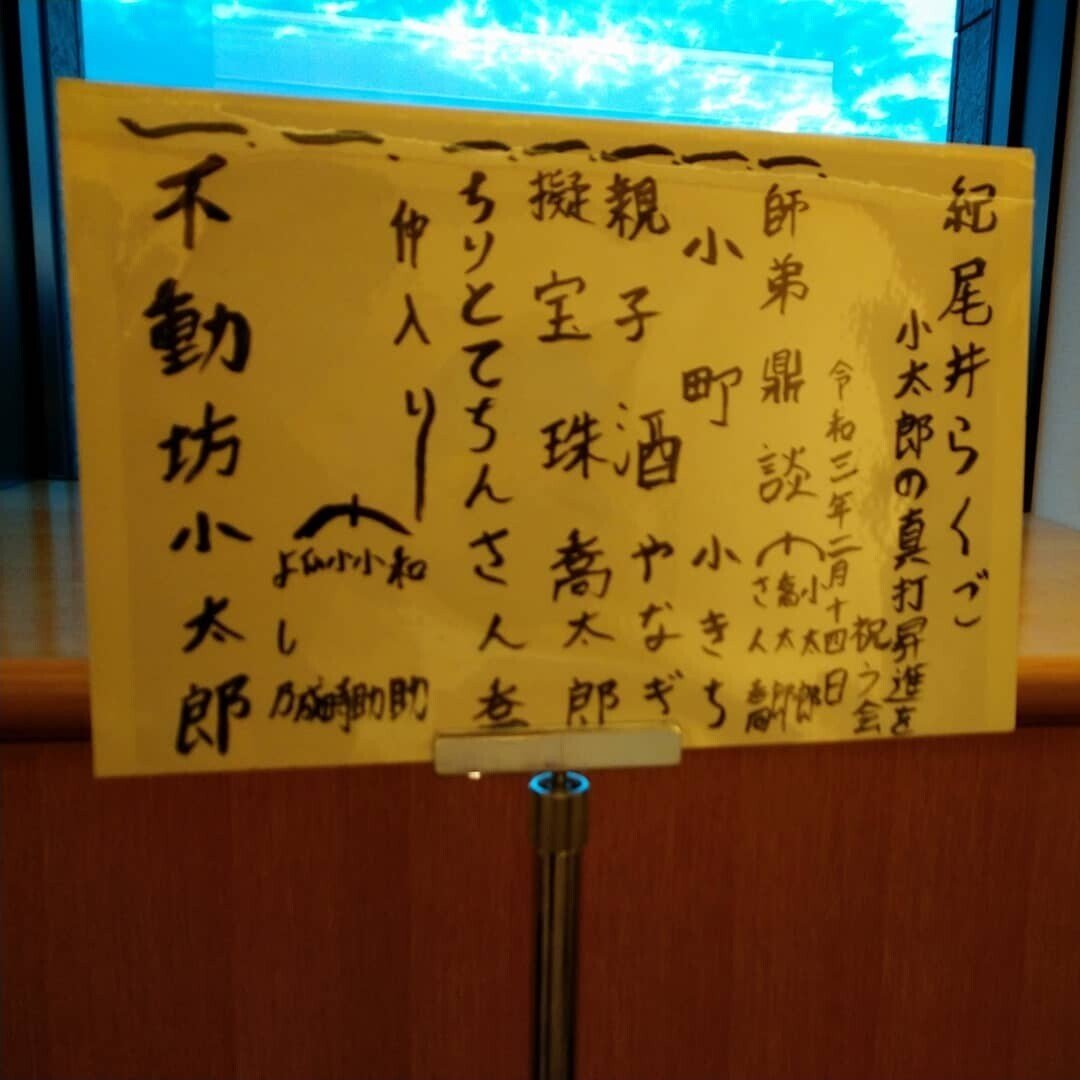 紀尾井らくご
小太郎の真打昇進を
祝う会
令和三年二月十四日
一、師弟鼎談 小太郎 喬太郎 さん喬
一、小町 小きち
一、親子酒 やなぎ
一、擬宝珠 喬太郎
一、ちりとてちん さん喬
仲入り
一、和助 小助 小時 仙成 よし乃
一、不動坊 小太郎